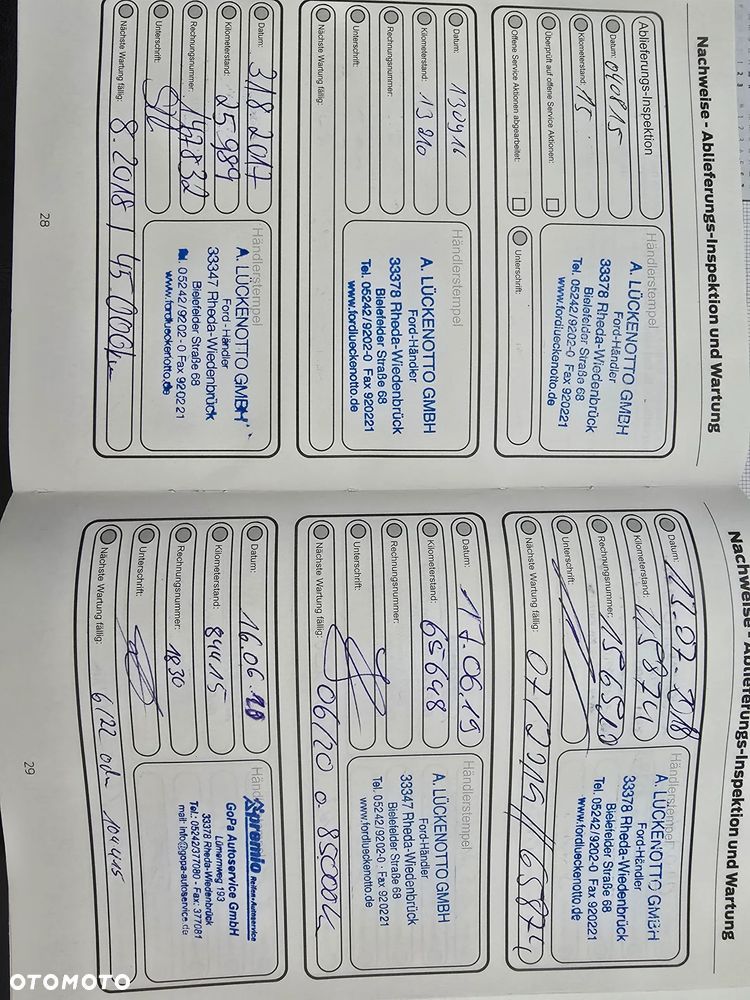 Nachweise - Ablieferungs-Inspektion und Wartung
Ablieferungs-Inspektion
Datum: 040815
Kilometerstand: 15
Überprüft auf offene Service Aktionen:
Offene Service Aktionen abgearbeitet:
Unterschrift:
Händlerstempel
A. LÜCKENOTTO GMBH
Ford-Händler
Bielefelder Straße 68
33378 Rheda-Wiedenbrück
Tel. 05242/9202-0 Fax 920221
www.fordlueckenotto.de
Datum: 130916
Kilometerstand: 13210
Rechnungsnummer:
Unterschrift:
Nächste Wartung fällig:
Händlerstempel
A. LÜCKENOTTO GMBH
Ford-Händler
Bielefelder Straße 68
33378 Rheda-Wiedenbrück
Tel. 05242/9202-0 Fax 920221
www.fordlueckenotto.de
Datum: 31.8.2017
Kilometerstand: 25989
Rechnungsnummer: 142832
Unterschrift:
Nächste Wartung fällig: 8.2018 / 45.000km
Händlerstempel
A. LÜCKENOTTO GMBH
Ford-Händler
Bielefelder Straße 68
33347 Rheda-Wiedenbrück
Tel. 05242/9202-0 Fax 920221
www.fordlueckenotto.de
28
Nachweise - Ablieferungs-Inspektion und Wartung
Datum: 13.07.2018
Kilometerstand: 45874
Rechnungsnummer: 156520
Unterschrift:
Nächste Wartung fällig: 07/2019 // 65874
Händlerstempel
A. LÜCKENOTTO GMBH
Ford-Händler
Bielefelder Straße 68
33378 Rheda-Wiedenbrück
Tel. 05242/9202-0 Fax 920221
www.fordlueckenotto.de
Datum: 17.06.19
Kilometerstand: 65648
Rechnungsnummer:
Unterschrift:
Nächste Wartung fällig: 06/20 o 85000k
Händlerstempel
A. LÜCKENOTTO GMBH
Ford-Händler
Bielefelder Straße 68
33347 Rheda-Wiedenbrück
Tel. 05242/9202-0 · Fax 920221
www.fordlueckenotto.de
Datum: 16.06.20
Kilometerstand: 84415
Rechnungsnummer: 1830
Unterschrift:
Nächste Wartung fällig: 6/22 oder 104415
Händ
premio Reifen+Autoservice
GoPa Autoservice GmbH
Lümernweg 193
33378 Rheda-Wiedenbrück
Tel.: 05242/377080 - Fax: 377081
mail: info@gopa-autoservice.de
29
OTOMOTO